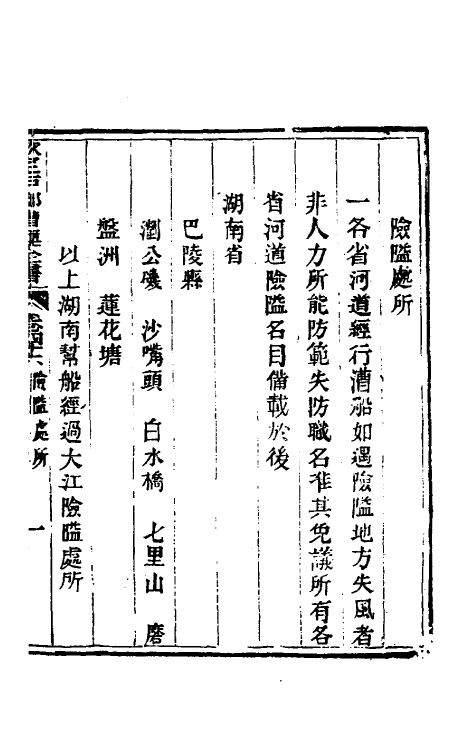 險隘處所
一各省河道經行漕船如遇險隘地方失風者
非人力所能防範失防職名准其免議所有各
省河道險隘名目備載於後
湖南省
巴陵縣
瀏公磯　沙嘴頭　白水橋　七里山　磨
盤洲　蓮花塘
以上湖南幫船經過大江險隘處所
欽定戶部漕運全書　卷四十六　險隘處所　一